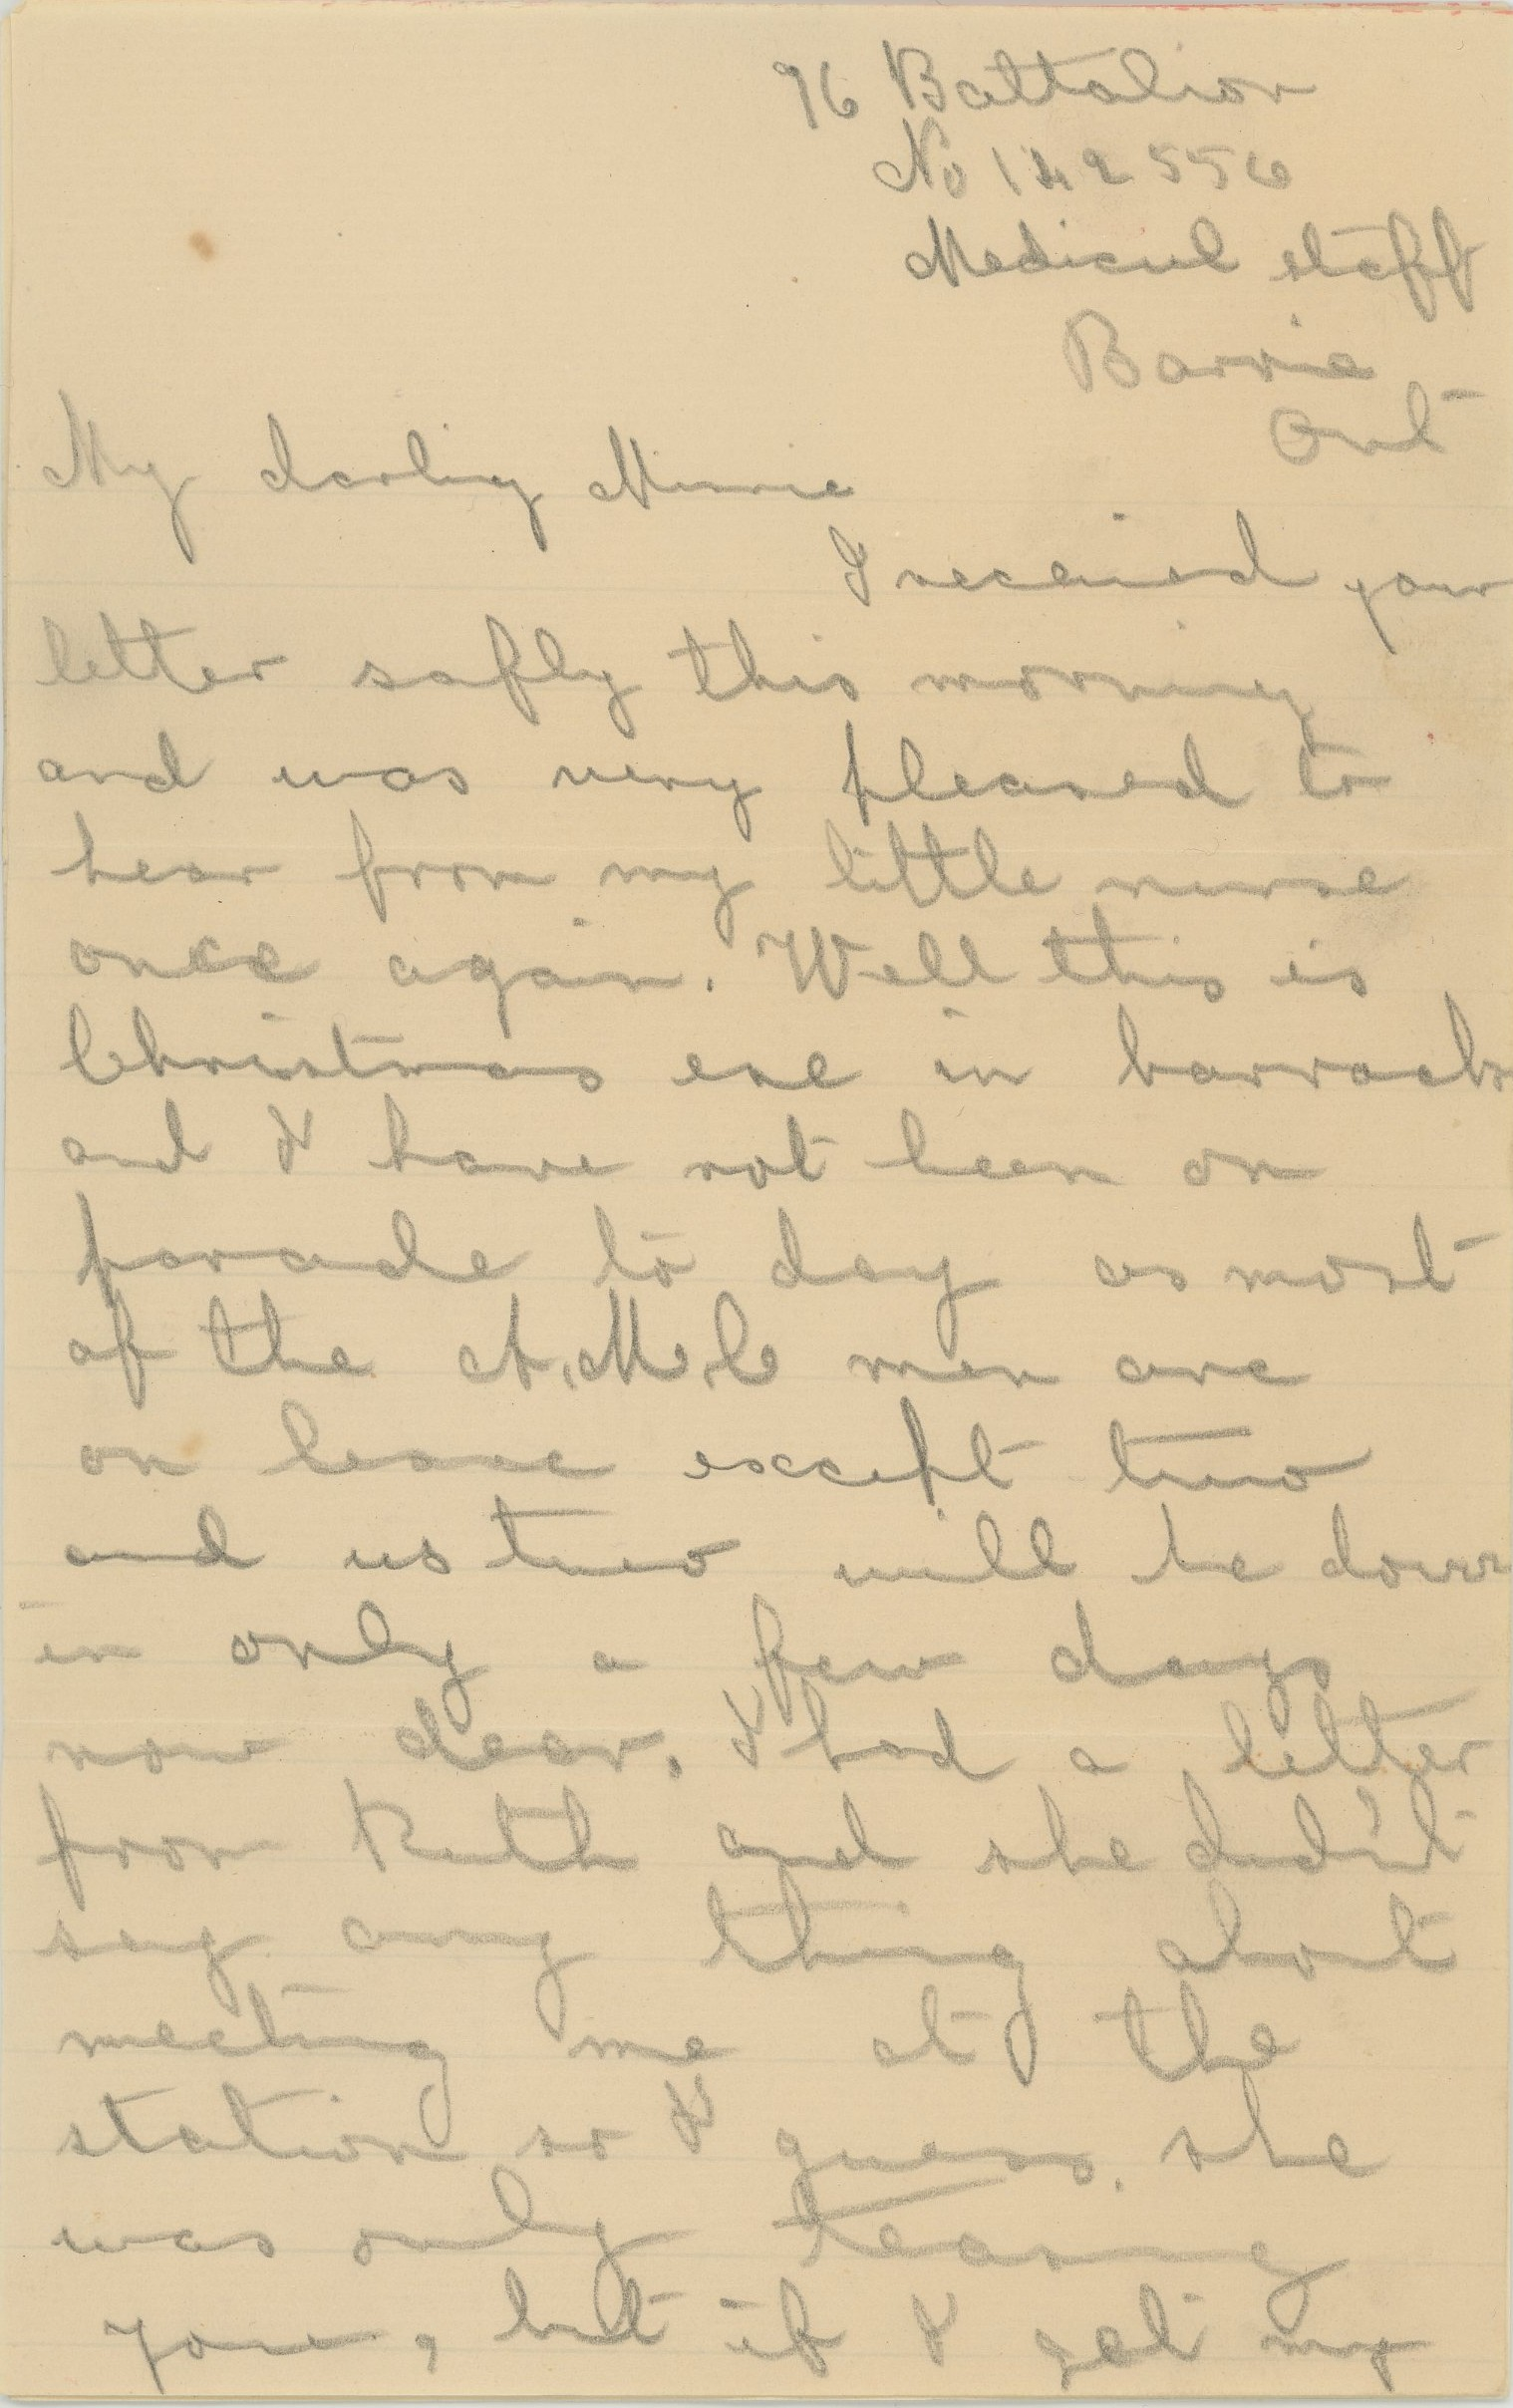 76 Battalion
No 142556
Medical staff
Barrie
Ont
My darling Minnie
I received your
letter safly this morning
and was very pleased to
hear from my little nurse
once again. Well this is
Christmas eve in barracks
and I have not been on
parade to day as most
of the A.M.C men are
on leave except two
and us two will be down
in only a few days
now dear. I had a letter
from Ruth and she didn't
say any thing about
meeting me at the
station so I guess she
was only teasing
you, but if I get my